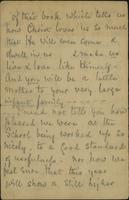 of this book which tells us
how Christ loves us so much
that He will even come &
dwell in us & make us
like Him
And you will be a little
mother to your very large
infant family
I need not tell you how
pleased we were at the
School being worked up so
nicely, to a good standard
of usefulness. nor how we
feel sure that this year
will show a still higher